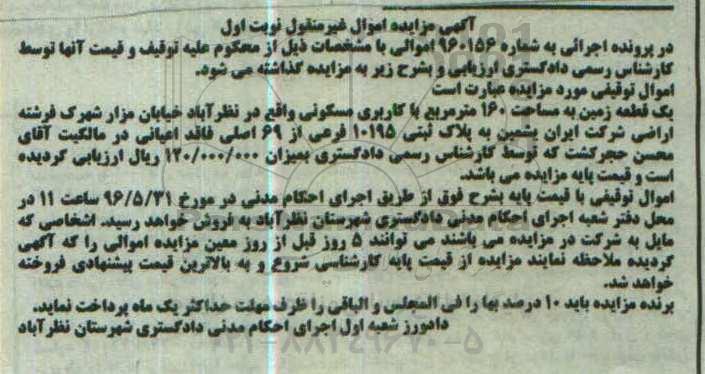 آگهی مزایده اموال غیرمنقول نوبت اول
در پرونده اجرائی به شماره ۹۶۰۱۵۶ اموالی با مشخصات ذیل از محکوم علیه توقیف و قیمت آنها توسط
کارشناس رسمی دادگستری ارزیابی و بشرح زیر به مزایده گذاشته می شود.
اموال توقیفی مورد مزایده عبارت است
یک قطعه زمین به مساحت ۱۶۰ مترمربع با کاربری مسکونی واقع در نظرآباد خیابان مزار شهرک فرشته
اراضی شرکت ایران پشمین به پلاک ثبتی ۱۰۱۹۵ فرعی از ۶۹ اصلی فاقد اعیانی در مالکیت آقای
محسن حجرکشت که توسط کارشناس رسمی دادگستری بمیزان ۱۲۰/۰۰۰/۰۰۰ ریال ارزیابی گردیده
است و قیمت پایه مزایده می باشد.
اموال توقیفی با قیمت پایه بشرح فوق از طریق اجرای احکام مدنی در مورخ ۹۶/۵/۳۱ ساعت ۱۱ در
محل دفتر شعبه اجرای احکام مدنی دادگستری شهرستان نظرآباد به فروش خواهد رسید. اشخاصی که
مایل به شرکت در مزایده می باشند می توانند ۵ روز قبل از روز معین مزایده اموالی را که آگهی
گردیده ملاحظه نمایند مزایده از قیمت پایه کارشناسی شروع و به بالاترین قیمت پیشنهادی فروخته
خواهد شد.
برنده مزایده باید ۱۰ درصد بها را فی المجلس و الباقی را ظرف مهلت حداکثر یک ماه پرداخت نماید.
دادورز شعبه اول اجرای احکام مدنی دادگستری شهرستان نظرآباد